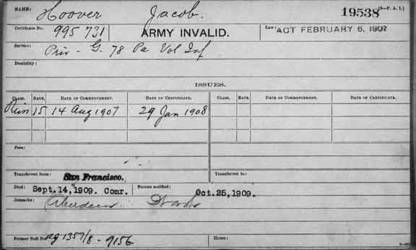 NAME: Hoover Jacob. 19538
Certificate No. 995 731 ARMY INVALID. Law: ACT FEBRUARY 6, 1907
Service: Priv - G. 78 Pa Vol Inf
Disability:
ISSUES.
CLASS. RATE. DATE OF COMMENCEMENT. DATE OF CERTIFICATE. CLASS. RATE. DATE OF COMMENCEMENT. DATE OF CERTIFICATE.
15 14 Aug 1907 29 Jan 1908
Fees:
Transferred from: San Francisco. Transferred to:
Died: Sept. 14, 1909. Comr. Bureau notified: Oct. 25, 1909.
Aberdeen Wash
Former Roll No. 1357/8 - 9156 Home: